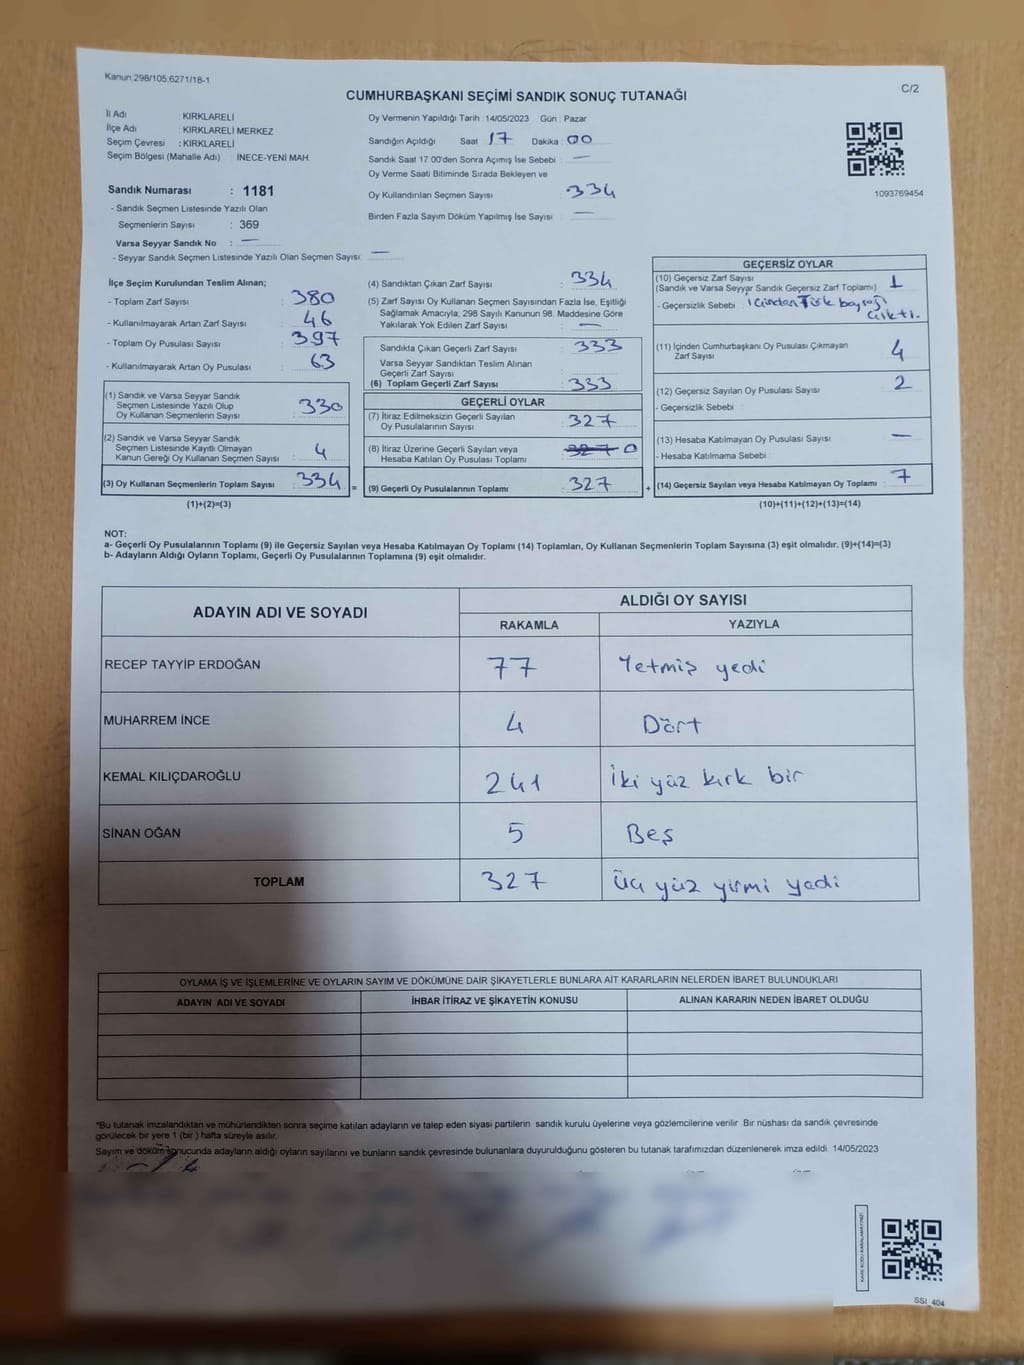 Kanun.298/105,6271/18-1
C/2
CUMHURBAŞKANI SEÇİMİ SANDIK SONUÇ TUTANAĞI
İl Adı KIRKLARELİ
İlçe Adı KIRKLARELİ MERKEZ
Seçim Çevresi : KIRKLARELİ
Seçim Bölgesi (Mahalle Adı) İNECE-YENİ MAH.
Sandık Numarası : 1181
- Sandık Seçmen Listesinde Yazılı Olan
Seçmenlerin Sayısı : 369
Varsa Seyyar Sandık No : —
- Seyyar Sandık Seçmen Listesinde Yazılı Olan Seçmen Sayısı: —
Oy Vermenin Yapıldığı Tarih : 14/05/2023 Gün : Pazar
Sandığın Açıldığı Saat 17 Dakika : 00
Sandık Saat 17.00'den Sonra Açımış İse Sebebi : —
Oy Verme Saati Bitiminde Sırada Bekleyen ve
Oy Kullandırılan Seçmen Sayısı : 334
Birden Fazla Sayım Döküm Yapılmış İse Sayısı : —
1093769454
İlçe Seçim Kurulundan Teslim Alınan;
- Toplam Zarf Sayısı : 380
- Kullanılmayarak Artan Zarf Sayısı : 46
- Toplam Oy Pusulası Sayısı : 397
- Kullanılmayarak Artan Oy Pusulası : 63
(1) Sandık ve Varsa Seyyar Sandık
Seçmen Listesinde Yazılı Olup
Oy Kullanan Seçmenlerin Sayısı : 330
(2) Sandık ve Varsa Seyyar Sandık
Seçmen Listesinde Kayıtlı Olmayan
Kanun Gereği Oy Kullanan Seçmen Sayısı : 4
(3) Oy Kullanan Seçmenlerin Toplam Sayısı : 334
(1)+(2)=(3)
(4) Sandıktan Çıkan Zarf Sayısı : 334
(5) Zarf Sayısı Oy Kullanan Seçmen Sayısından Fazla İse, Eşitliği
Sağlamak Amacıyla; 298 Sayılı Kanunun 98. Maddesine Göre
Yakılarak Yok Edilen Zarf Sayısı : —
Sandıkta Çıkan Geçerli Zarf Sayısı : 333
Varsa Seyyar Sandıktan Teslim Alınan
Geçerli Zarf Sayısı :
(6) Toplam Geçerli Zarf Sayısı : 333
GEÇERLİ OYLAR
(7) İtiraz Edilmeksizin Geçerli Sayılan
Oy Pusulalarının Sayısı : 327
(8) İtiraz Üzerine Geçerli Sayılan veya
Hesaba Katılan Oy Pusulası Toplamı : 327 0
= (9) Geçerli Oy Pusulalarının Toplamı : 327
GEÇERSİZ OYLAR
(10) Geçersiz Zarf Sayısı
(Sandık ve Varsa Seyyar Sandık Geçersiz Zarf Toplamı) : 1
- Geçersizlik Sebebi : içinden Türk bayrağı
çıktı.
(11) İçinden Cumhurbaşkanı Oy Pusulası Çıkmayan
Zarf Sayısı : 4
(12) Geçersiz Sayılan Oy Pusulası Sayısı : 2
- Geçersizlik Sebebi :
(13) Hesaba Katılmayan Oy Pusulası Sayısı : —
- Hesaba Katılmama Sebebi :
+ (14) Geçersiz Sayılan veya Hesaba Katılmayan Oy Toplamı : 7
(10)+(11)+(12)+(13)=(14)
NOT:
a- Geçerli Oy Pusulalarının Toplamı (9) ile Geçersiz Sayılan veya Hesaba Katılmayan Oy Toplamı (14) Toplamları, Oy Kullanan Seçmenlerin Toplam Sayısına (3) eşit olmalıdır. (9)+(14)=(3)
b- Adayların Aldığı Oyların Toplamı, Geçerli Oy Pusulalarının Toplamına (9) eşit olmalıdır.
ADAYIN ADI VE SOYADI ALDIĞI OY SAYISI
RAKAMLA YAZIYLA
RECEP TAYYİP ERDOĞAN 77 Yetmiş yedi
MUHARREM İNCE 4 Dört
KEMAL KILIÇDAROĞLU 241 İki yüz kırk bir
SİNAN OĞAN 5 Beş
TOPLAM 327 üç yüz yirmi yedi
OYLAMA İŞ VE İŞLEMLERİNE VE OYLARIN SAYIM VE DÖKÜMÜNE DAİR ŞİKAYETLERLE BUNLARA AİT KARARLARIN NELERDEN İBARET BULUNDUKLARI
ADAYIN ADI VE SOYADI İHBAR İTİRAZ VE ŞİKAYETİN KONUSU ALINAN KARARIN NEDEN İBARET OLDUĞU
*Bu tutanak imzalandıktan ve mühürlendikten sonra seçime katılan adayların ve talep eden siyasi partilerin sandık kurulu üyelerine veya gözlemcilerine verilir. Bir nüshası da sandık çevresinde
görülecek bir yere 1 (bir ) hafta süreyle asılır.
Sayım ve döküm sonucunda adayların aldığı oyların sayılarını ve bunların sandık çevresinde bulunanlara duyurulduğunu gösteren bu tutanak tarafımızdan düzenlenerek imza edildi. 14/05/2023
SSI_404